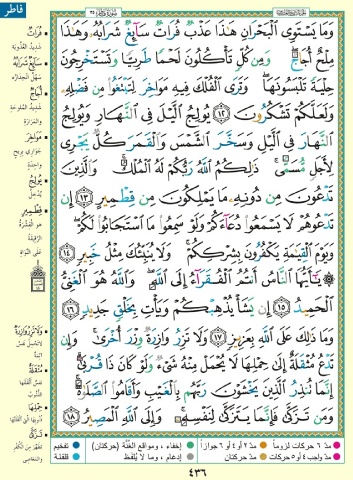 فاطر
وَمَا يَسْتَوِى ٱلْبَحْرَانِ هَٰذَا عَذْبٌ فُرَاتٌ سَآئِغٌ شَرَابُهُۥ وَهَٰذَا
مِلْحٌ أُجَاجٌ ۖ وَمِن كُلٍّ تَأْكُلُونَ لَحْمًا طَرِيًّا وَتَسْتَخْرِجُونَ
حِلْيَةً تَلْبَسُونَهَا ۖ وَتَرَى ٱلْفُلْكَ فِيهِ مَوَاخِرَ لِتَبْتَغُوا۟ مِن فَضْلِهِۦ
وَلَعَلَّكُمْ تَشْكُرُونَ ١٢ يُولِجُ ٱلَّيْلَ فِى ٱلنَّهَارِ وَيُولِجُ
ٱلنَّهَارَ فِى ٱلَّيْلِ وَسَخَّرَ ٱلشَّمْسَ وَٱلْقَمَرَ كُلٌّ يَجْرِى
لِأَجَلٍ مُّسَمًّى ۚ ذَٰلِكُمُ ٱللَّهُ رَبُّكُمْ لَهُ ٱلْمُلْكُ ۚ وَٱلَّذِينَ
تَدْعُونَ مِن دُونِهِۦ مَا يَمْلِكُونَ مِن قِطْمِيرٍ ١٣ إِن
تَدْعُوهُمْ لَا يَسْمَعُوا۟ دُعَآءَكُمْ وَلَوْ سَمِعُوا۟ مَا ٱسْتَجَابُوا۟ لَكُمْ ۖ
وَيَوْمَ ٱلْقِيَٰمَةِ يَكْفُرُونَ بِشِرْكِكُمْ ۚ وَلَا يُنَبِّئُكَ مِثْلُ خَبِيرٍ ١٤
۞ يَٰٓأَيُّهَا ٱلنَّاسُ أَنتُمُ ٱلْفُقَرَآءُ إِلَى ٱللَّهِ ۖ وَٱللَّهُ هُوَ ٱلْغَنِىُّ
ٱلْحَمِيدُ ١٥ إِن يَشَأْ يُذْهِبْكُمْ وَيَأْتِ بِخَلْقٍ جَدِيدٍ ١٦
وَمَا ذَٰلِكَ عَلَى ٱللَّهِ بِعَزِيزٍ ١٧ وَلَا تَزِرُ وَازِرَةٌ وِزْرَ أُخْرَىٰ ۚ وَإِن
تَدْعُ مُثْقَلَةٌ إِلَىٰ حِمْلِهَا لَا يُحْمَلْ مِنْهُ شَىْءٌ وَلَوْ كَانَ ذَا قُرْبَىٰٓ ۗ
إِنَّمَا تُنذِرُ ٱلَّذِينَ يَخْشَوْنَ رَبَّهُم بِٱلْغَيْبِ وَأَقَامُوا۟ ٱلصَّلَوٰةَ ۚ
وَمَن تَزَكَّىٰ فَإِنَّمَا يَتَزَكَّىٰ لِنَفْسِهِۦ ۚ وَإِلَى ٱللَّهِ ٱلْمَصِيرُ ١٨
فُرَاتٌ
شديد العذوبة
سَائِغٌ شَرَابُهُ
سهل انحداره
أُجَاجٌ
شديد الملوحة
والمرارة
مَوَاخِرَ
جواري بريح
واحدة
يُولِجُ
يدخل
قِطْمِيرٍ
هو القشرة
الرقيقة
على النواة
وَلَا تَزِرُ وَازِرَةٌ
لا تحمل نفس
آثمة
مُثْقَلَةٌ
نفس أثقلتها
الذنوب
حِمْلِهَا
ذنوبها التي أثقلتها
تَزَكَّىٰ
تطهر من الكفر
والمعاصي
مدّ ٦ حركات لزوماً
مدّ ٢ أو ٤ أو ٦ جوازاً
إخفاء، ومواقع الغُنَّة (حركتان)
تفخيم
مدّ واجب ٤ أو ٥ حركات
مدّ حركتان
إدغام، وما لا يُلفَظ
قلقلة
٤٣٦